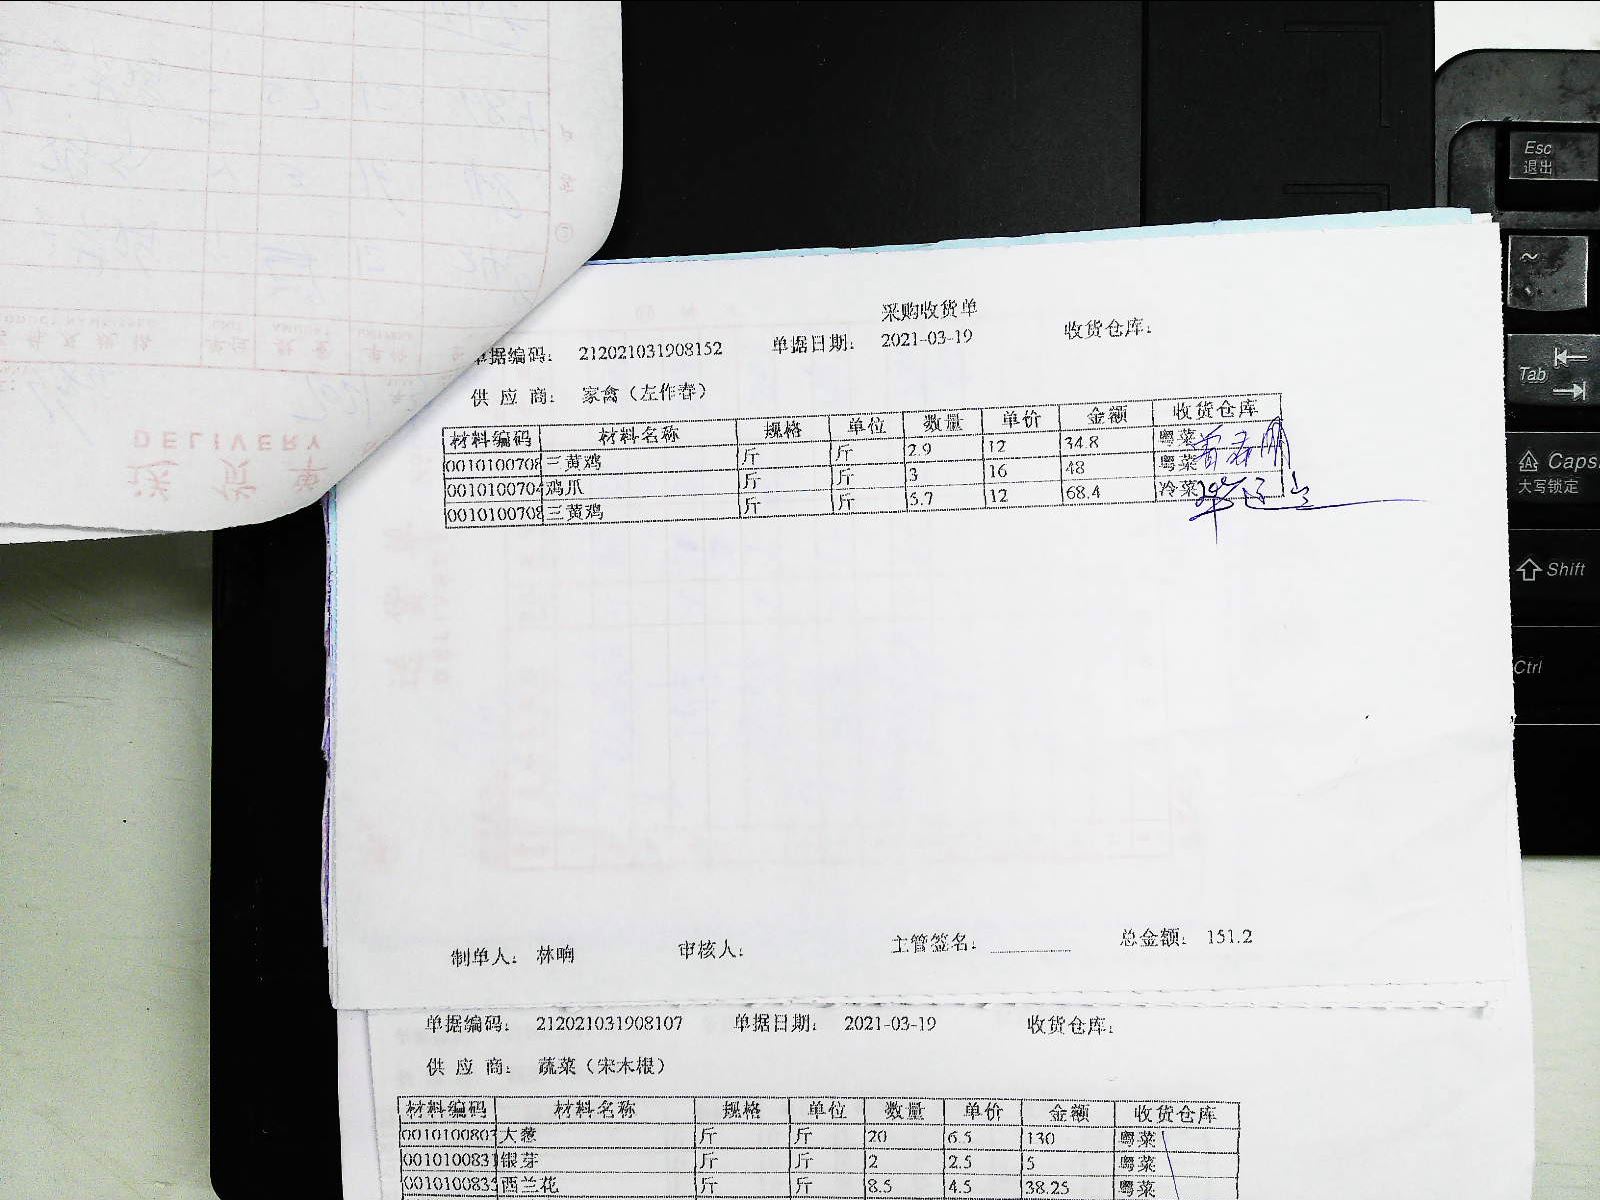 采购收货单
单据编码： 212021031908152 单据日期： 2021-03-19 收货仓库：
供 应 商： 家禽（左作春）
材料编码 材料名称 规格 单位 数量 单价 金额 收货仓库
0010100708 三黄鸡 斤 斤 2.9 12 34.8 粤菜
0010100704 鸡爪 斤 斤 3 16 48 粤菜
0010100708 三黄鸡 斤 斤 5.7 12 68.4 冷菜
制单人： 林晌 审核人： 主管签名： 总金额： 151.2
单据编码： 212021031908107 单据日期： 2021-03-19 收货仓库：
供 应 商： 蔬菜（宋木根）
材料编码 材料名称 规格 单位 数量 单价 金额 收货仓库
0010100803 大葱 斤 斤 20 6.5 130 粤菜
0010100831 银芽 斤 斤 2 2.5 5 粤菜
0010100835 西兰花 斤 斤 8.5 4.5 38.25 粤菜
DELIVERY
送 货 单
Esc
退出
~
Tab
Caps
大写锁定
Shift
Ctrl